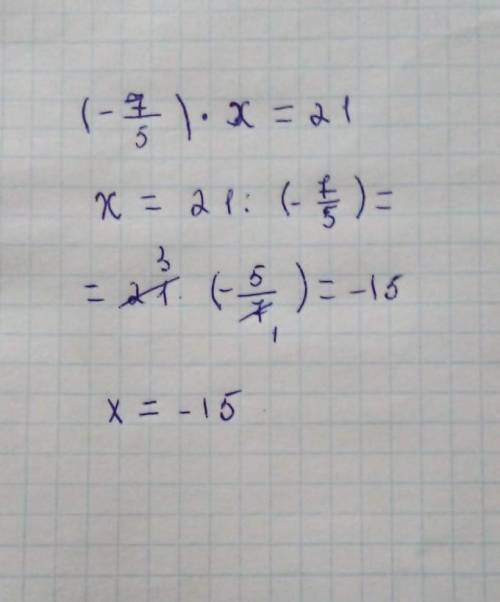 (- 7/5) · x = 21
x = 21 : (- 7/5) =
= 21 3 · (- 5/7 1) = -15
x = -15